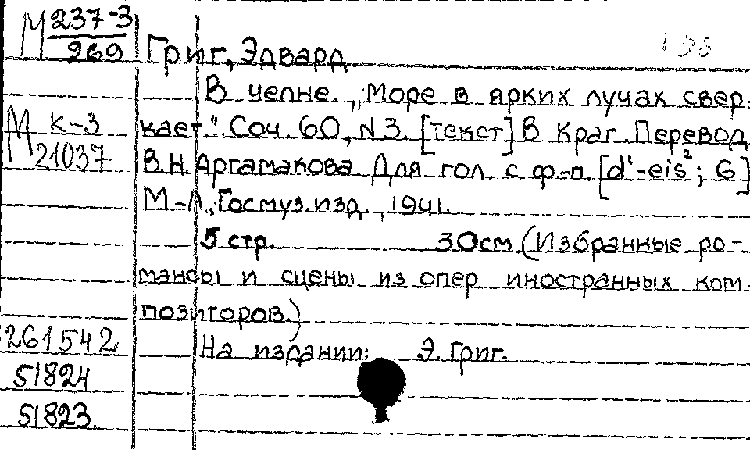 М 237-3
269
Григ, Эдвард
В челне. „Море в ярких лучах свер-
М К-3
21037
кает." Соч. 60, N 3. [Текст] В. Краг. Перевод
В.Н. Аргамакова Для гол. с ф-п. [d'-eis²; G]
М-Л., Госмуз.изд., 1941.
5 стр. 30см. (Избранные ро-
мансы и сцены из опер иностранных ком-
позиторов.)
На издании: Э. Григ.
261542
51824
51823